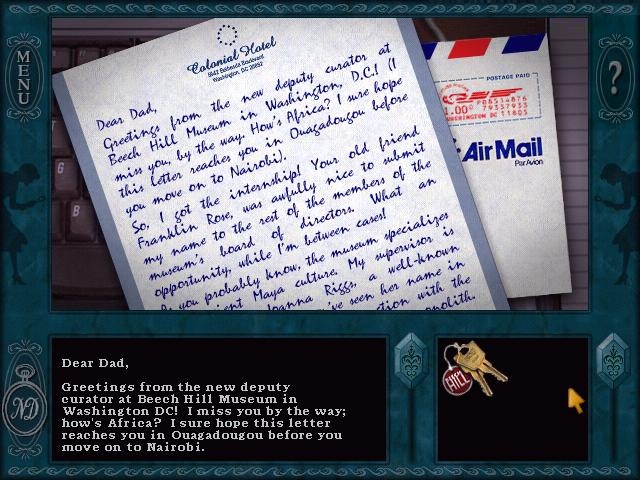 MENU
?
G
B
Colonial Hotel
Washington, DC 20092
Dear Dad,
Greetings from the new deputy curator at
Beech Hill Museum in Washington, D.C.! (I
miss you by the way. How's Africa? I sure hope
this letter reaches you in Ouagadougou before
you move on to Nairobi).
So, I got the internship! Your old friend
Franklin Rose, was awfully nice to submit
my name to the rest of the members of the
museum's board of directors. What an
opportunity, while I'm between cases!
As you probably know, the museum specializes
ient Maya culture. My supervisor is
oanna Riggs, a well-known
've seen her name in
ction with the
onolith.
POSTAGE PAID
1.00
Air Mail
Par Avion
Dear Dad,
Greetings from the new deputy
curator at Beech Hill Museum in
Washington DC! I miss you by the way;
how's Africa? I sure hope this letter
reaches you in Ouagadougou before you
move on to Nairobi.
ND